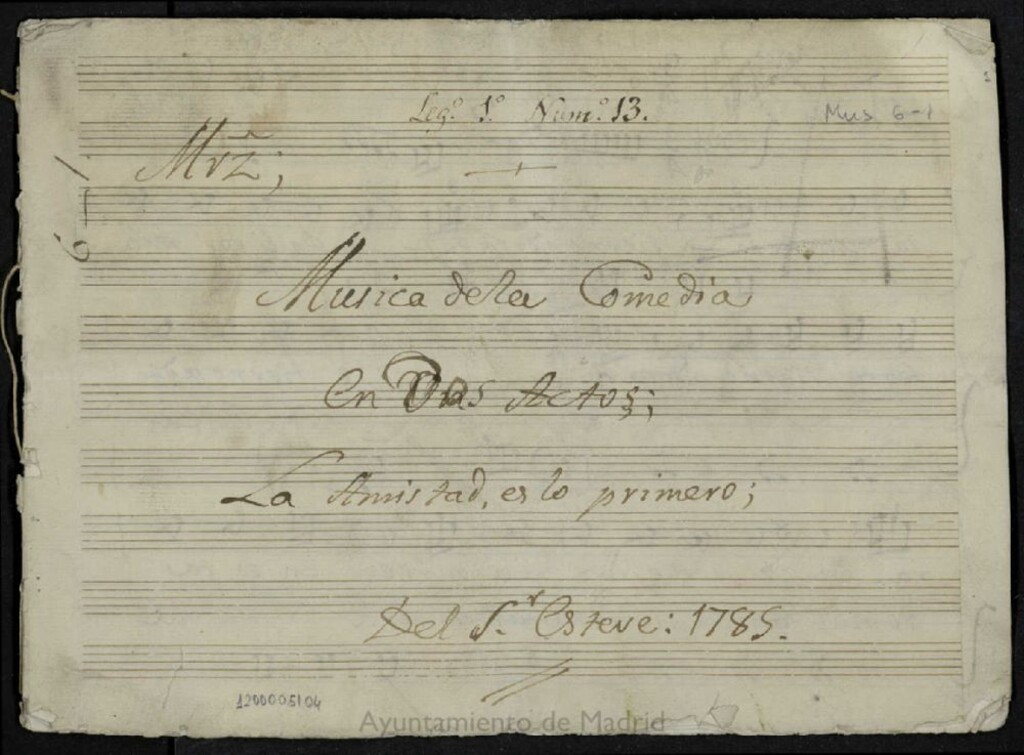 Leg.º 1.º Num.º 13.
Mus 6-1
Mrz̃;
6-1
Musica de la Comedia
En Dos Actos;
La Amistad, es lo primero;
Del S.r Esteve: 1785.
1200005104
Ayuntamiento de Madrid